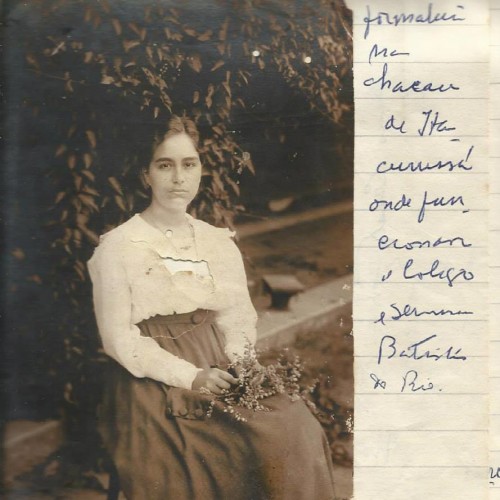 na
chacara
de Ita
curussá
onde fun
cionava
o Colegio
e Seminario
Batista
do Rio.